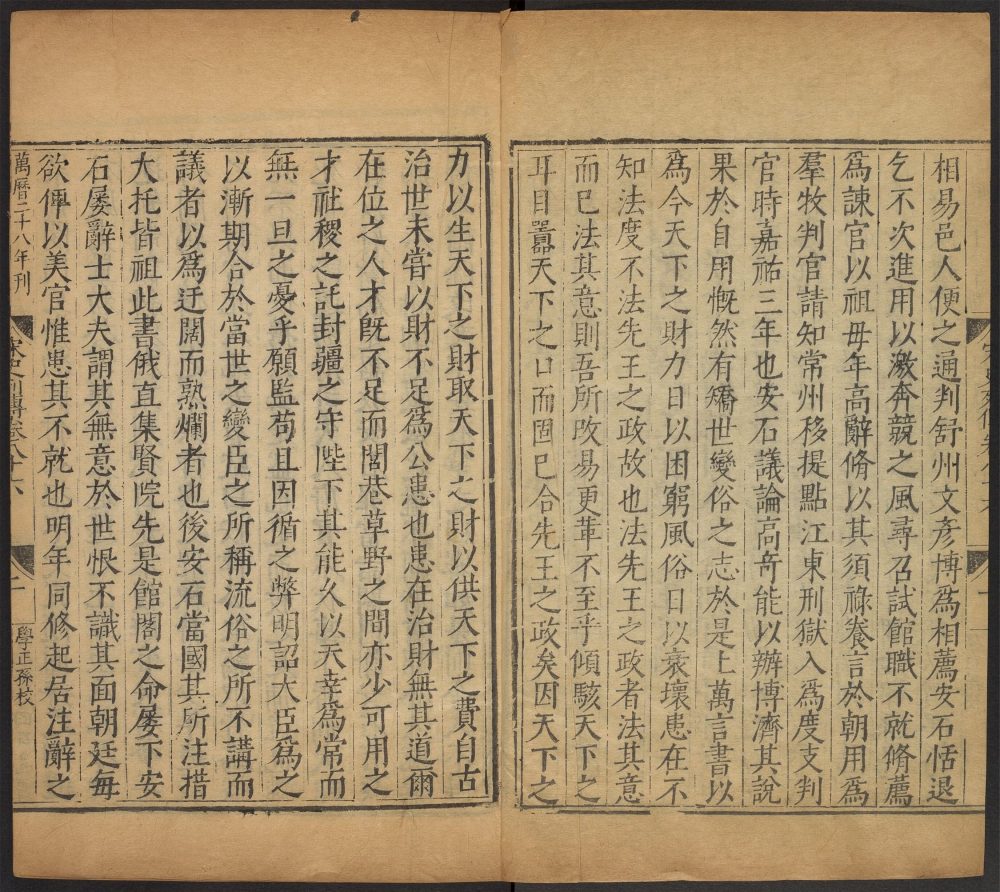 相易邑人便之通判舒州文彥博爲相薦安石恬退
乞不次進用以激奔競之風尋召試館職不就脩薦
爲諫官以祖母年高辭脩以其須祿養言於朝用爲
羣牧判官請知常州移提點江東刑獄入爲度支判
官時嘉祐三年也安石議論高奇能以辯博濟其說
果於自用慨然有矯世變俗之志於是上萬言書以
爲今天下之財力日以困窮風俗日以衰壞患在不
知法度不法先王之政故也法先王之政者法其意
而已法其意則吾所改易更革不至乎傾駭天下之
耳目嚚天下之口而固已合先王之政矣因天下之
力以生天下之財取天下之財以供天下之費自古
治世未嘗以財不足爲公患也患在治財無其道爾
在位之人才旣不足而閭巷草野之間亦少可用之
才社稷之託封疆之守陛下其能久以天幸爲常而
無一旦之憂乎願監苟且因循之弊明詔大臣爲之
以漸期合於當世之變臣之所稱流俗之所不講而
議者以爲迂闊而熟爛者也後安石當國其所注措
大托皆祖此書俄直集賢院先是館閣之命屢下安
石屢辭士大夫謂其無意於世恨不識其面朝廷每
欲俾以美官惟患其不就也明年同修起居注辭之
萬曆二十八年刊
宋史列傳卷八十六
二
學正孫校